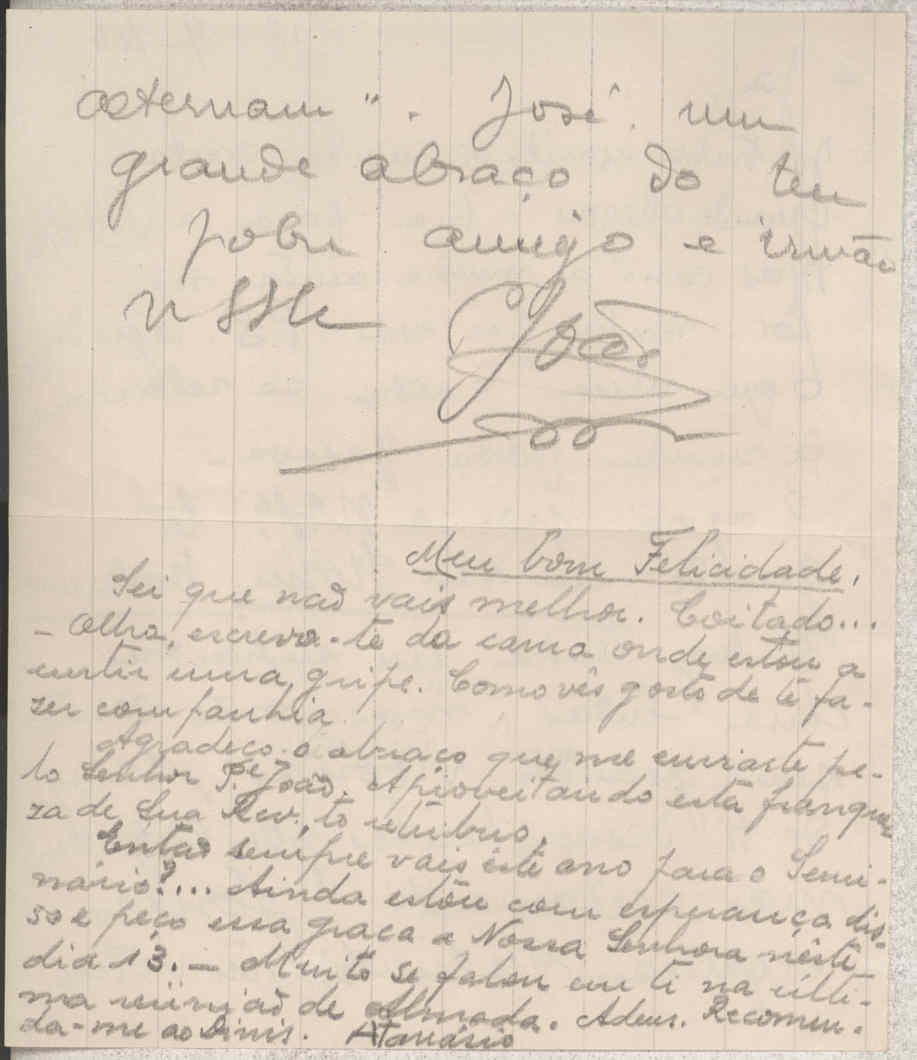 aeternam". José, um
grande abraço do teu
pobre amigo e irmão
n SSSe João
Meu bom Felicidade,
Sei que não vais melhor. Coitado...
- Olha, escrevo-te da cama onde estou a
curtir uma gripe. Como vês gosto de te fa-
zer companhia.
Agradeço o abraço que me enviaste pe-
lo Senhor P.e João. Aproveitando esta franque-
za de Sua Rev. to retribuo.
Então sempre vais êste ano para o Semi-
nário?... Ainda estou com esperança dis-
so e peço essa graça a Nossa Senhora nêste
dia 13. - Muito se falou em ti na últi-
ma reünião de Almada. Adeus. Recomen-
da-me ao Dinis. Atanásio